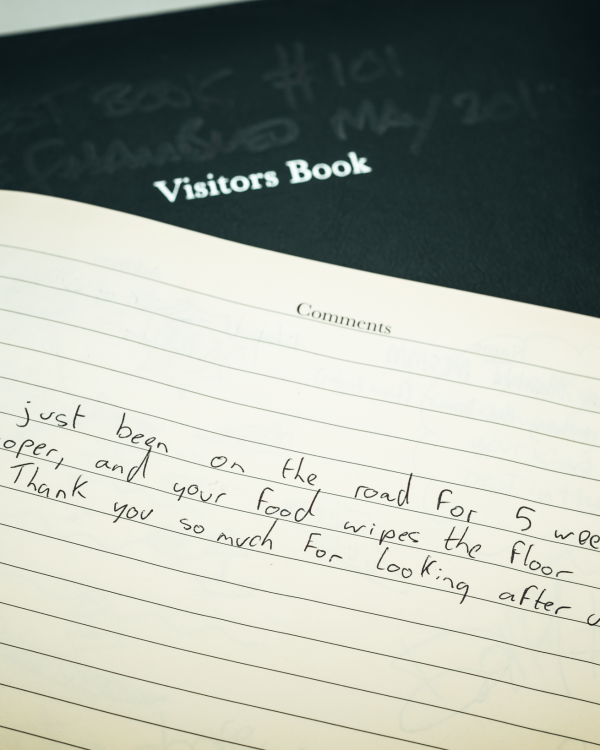 BOOK #101
MAY 201
Visitors Book
Comments
just been on the road for 5 wee
oper, and your food wipes the floor
Thank you so much for looking after u